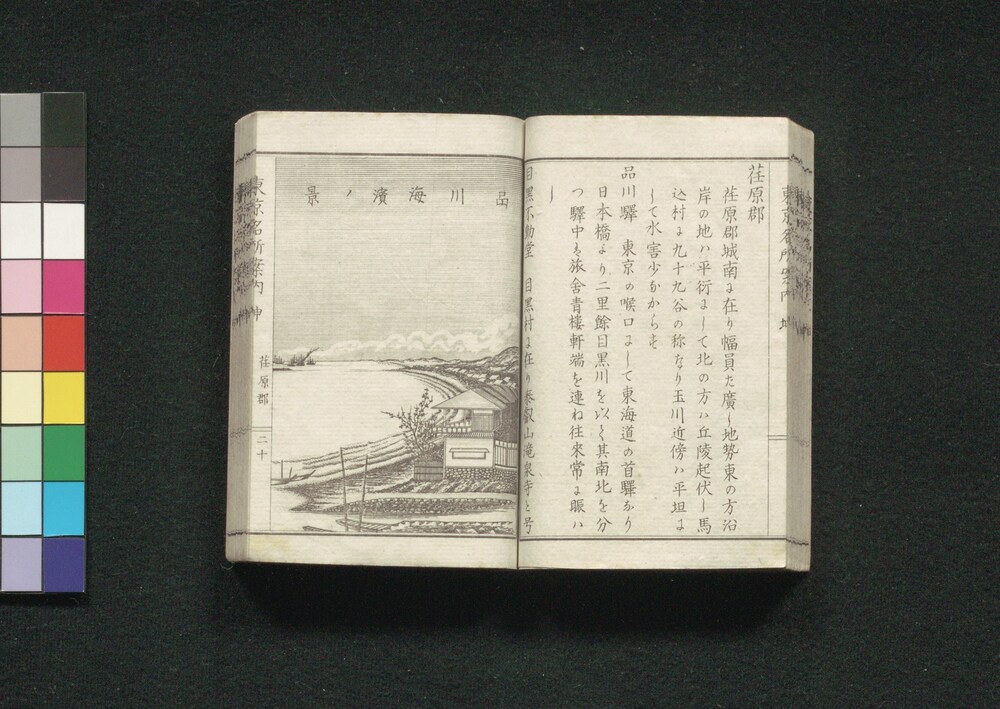 荏原郡
荏原郡城南ニ在リ幅員た廣し地勢東の方沿
岸の地ハ平衍ニして北の方ハ丘陵起伏し馬
込村ニ九十九谷の称なり玉川近傍ハ平坦ニ
して水害少なからず
品川驛 東京の喉口ニして東海道の首驛なり
日本橋より二里餘目黒川を以て其南北を分
つ驛中も旅舎青樓軒端を連ね往来常ニ賑ハ
し
目黒不動堂 目黒村ニ在り泰叡山滝泉寺と号
品川海濱ノ景
東京名所案内
荏原郡
二十